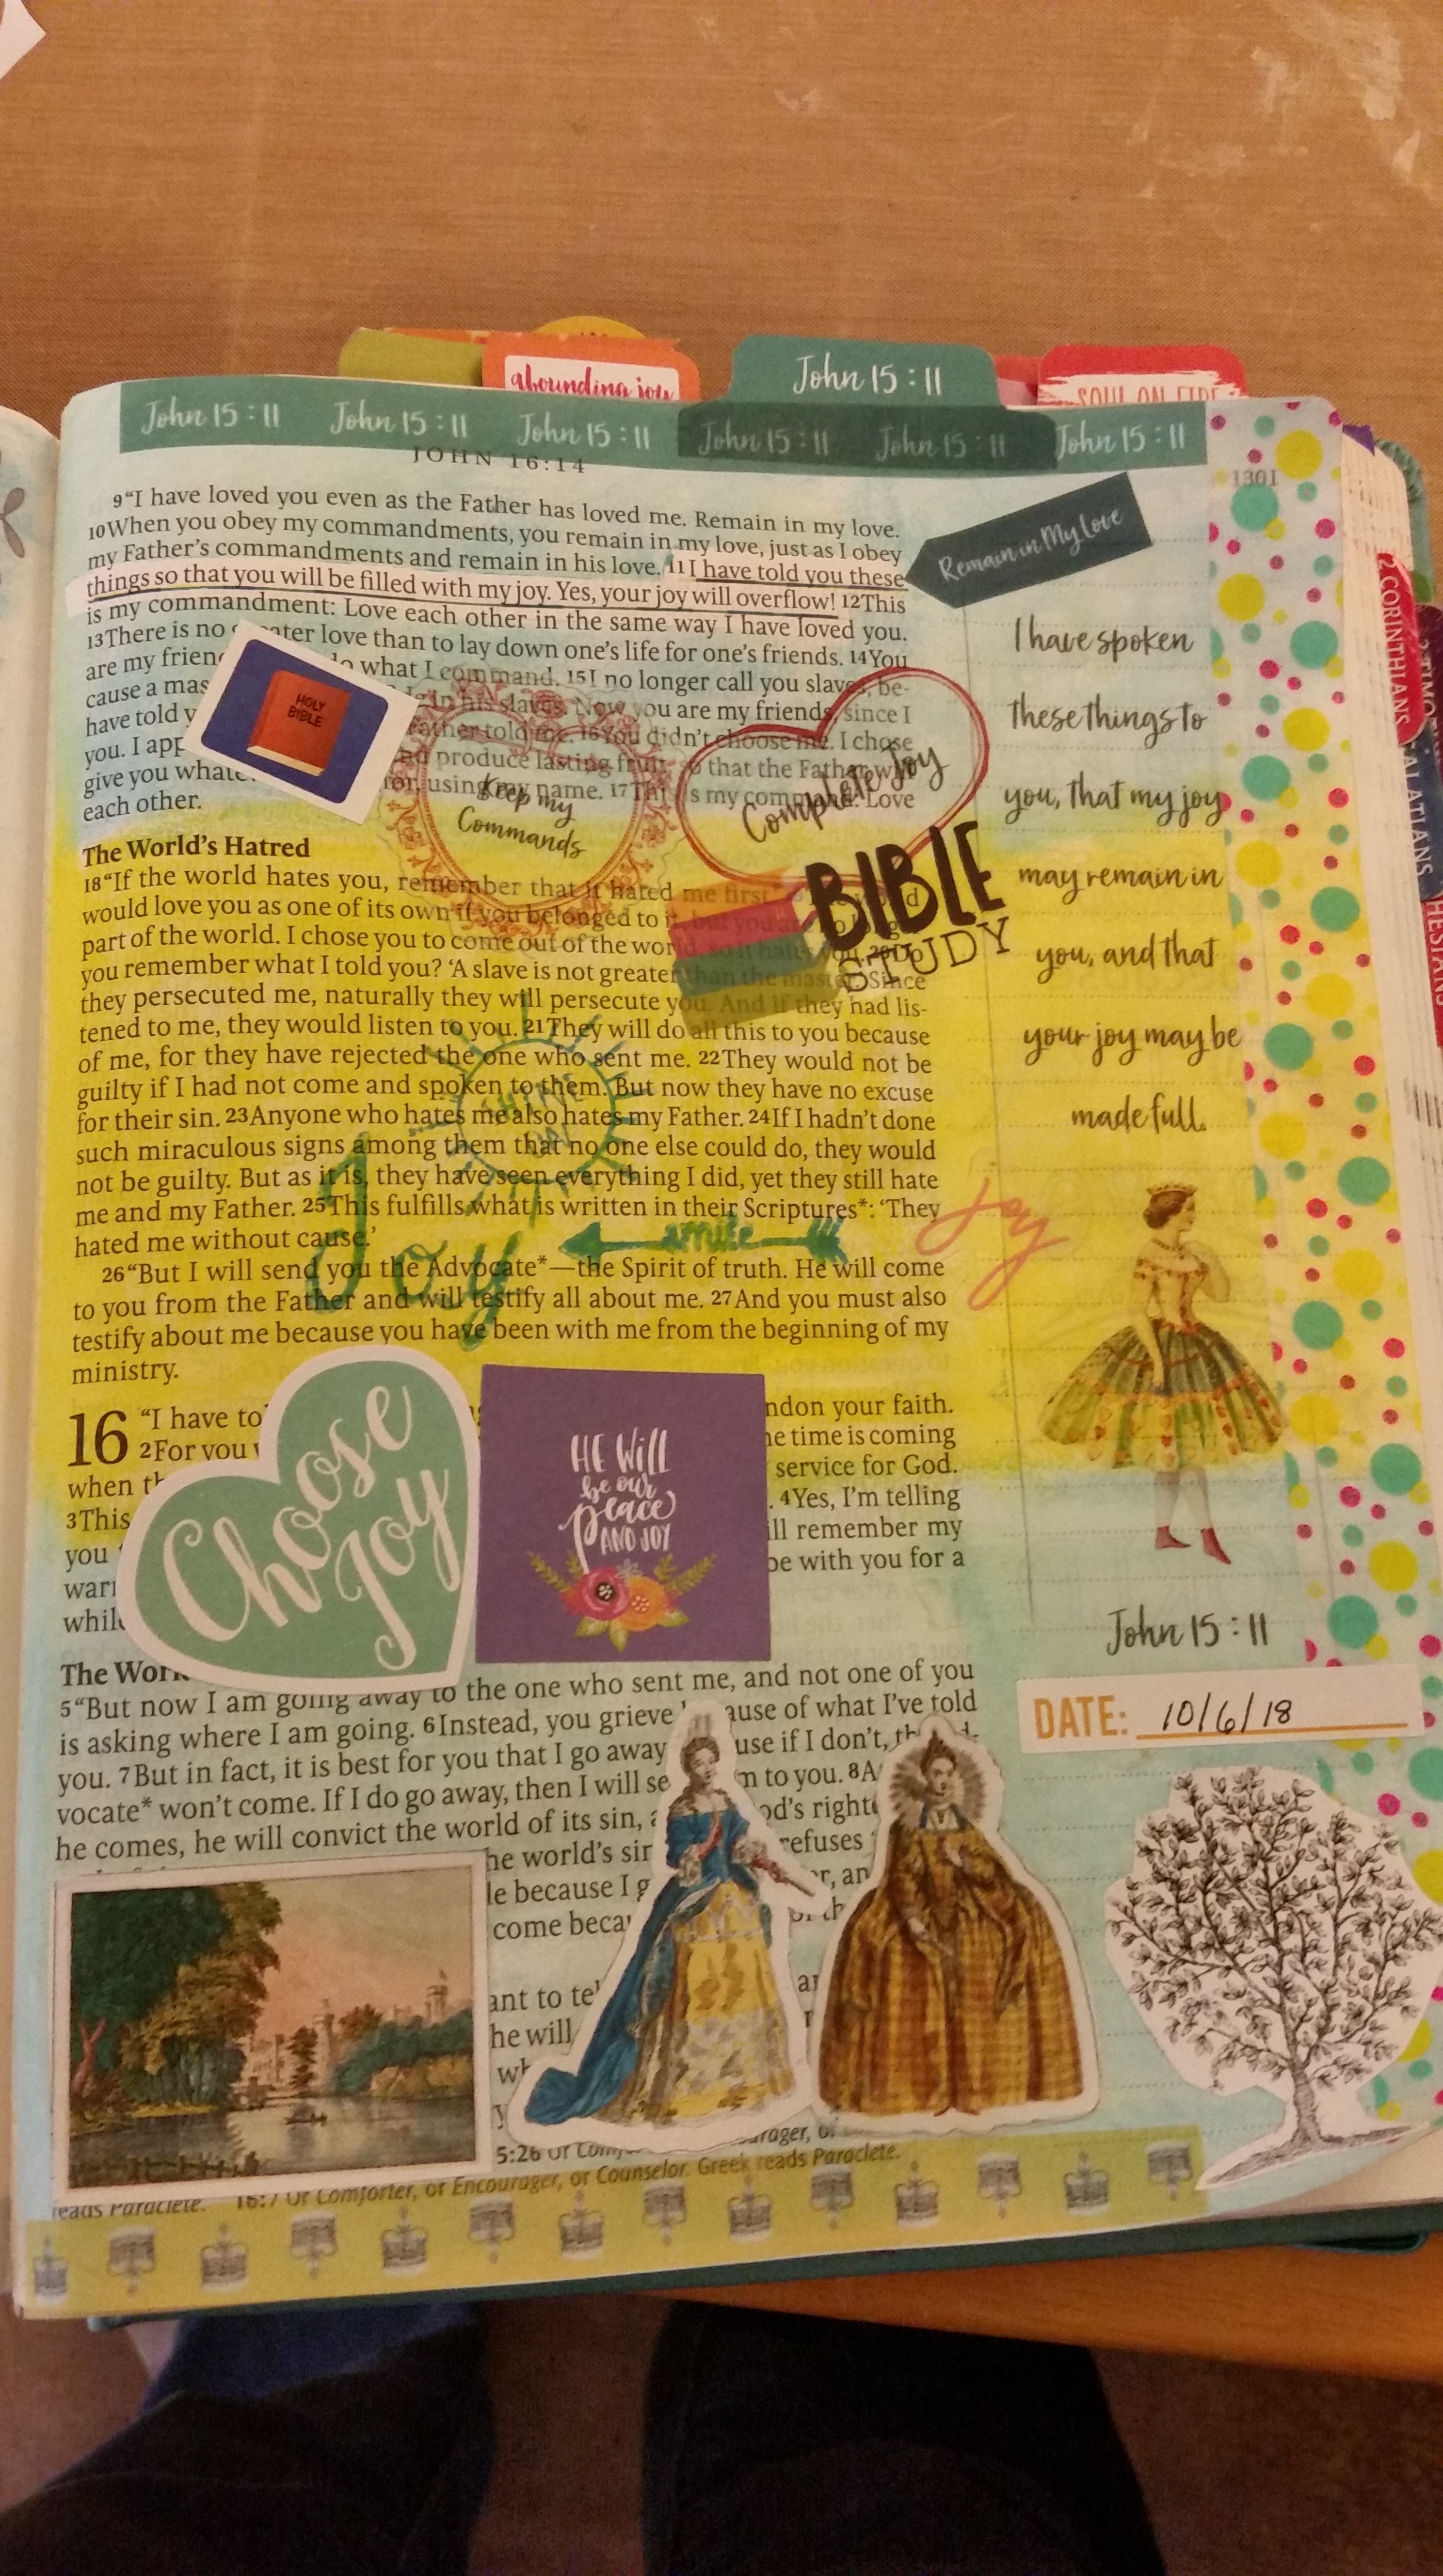 abounding joy
John 15 : 11
SOUL ON FIRE
John 15 : 11 John 15 : 11 John 15 : 11 John 15 : 11 John 15 : 11 John 15 : 11
JOHN 16:14
1301
9“I have loved you even as the Father has loved me. Remain in my love.
10When you obey my commandments, you remain in my love, just as I obey
my Father’s commandments and remain in his love. 11I have told you these
things so that you will be filled with my joy. Yes, your joy will overflow! 12This
is my commandment: Love each other in the same way I have loved you.
13There is no greater love than to lay down one’s life for one’s friends. 14You
are my friends what I command. 15I no longer call you slaves, be-
cause a mas in his slaves. Now you are my friends, since I
have told y Father told me. 16You didn’t choose me. I chose
you. I app nd produce lasting fruit, so that the Father w
give you whate for, using my name. 17This is my command: Love
each other.
HOLY
BIBLE
Keep my
Commands
Complete Joy
BIBLE
STUDY
The World’s Hatred
18“If the world hates you, remember that it hated me first.
would love you as one of its own if you belonged to it, but you are no longer
part of the world. I chose you to come out of the world, so it hates you. 20Do
you remember what I told you? ‘A slave is not greater than the master.’ Since
they persecuted me, naturally they will persecute you. And if they had lis-
tened to me, they would listen to you. 21They will do all this to you because
of me, for they have rejected the one who sent me. 22They would not be
guilty if I had not come and spoken to them. But now they have no excuse
for their sin. 23Anyone who hates me also hates my Father. 24If I hadn’t done
such miraculous signs among them that no one else could do, they would
not be guilty. But as it is, they have seen everything I did, yet they still hate
me and my Father. 25This fulfills what is written in their Scriptures*: ‘They
hated me without cause.’
26“But I will send you the Advocate*—the Spirit of truth. He will come
to you from the Father and will testify all about me. 27And you must also
testify about me because you have been with me from the beginning of my
ministry.
SHINE
Joy
smile
joy
16 “I have to ndon your faith.
2For you he time is coming
when th service for God.
3This . 4Yes, I’m telling
you ill remember my
warn be with you for a
while
Choose
Joy
HE WILL
be our
peace
AND JOY
The Wor
5“But now I am going away to the one who sent me, and not one of you
is asking where I am going. 6Instead, you grieve because of what I’ve told
you. 7But in fact, it is best for you that I go away use if I don’t, the Ad-
vocate* won’t come. If I do go away, then I will se m to you. 8A
he comes, he will convict the world of its sin, a od’s right
he world’s sin refuses
le because I g r, an
come beca
ant to te
he will
5:26 Or Comfo rager, or
reads Paraclete. 16:7 Or Comforter, or Encourager, or Counselor. Greek reads Paraclete.
Remain in My Love
I have spoken
these things to
you, that my joy
may remain in
you, and that
your joy may be
made full.
John 15 : 11
DATE: 10/6/18
2 CORINTHIANS
GALATIANS